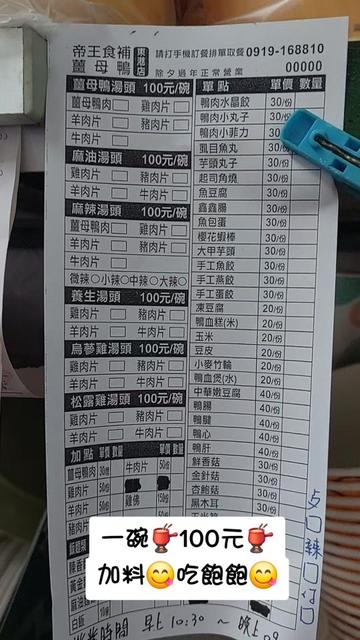 帝王食補
薑母鴨
東港店
請打手機訂餐排單取餐0919-168810
除夕過年正常營業
00000
薑母鴨湯頭 100元/碗
薑母鴨肉 雞肉片
羊肉片 豬肉片
牛肉片
麻油湯頭 100元/碗
雞肉片 豬肉片
羊肉片 牛肉片
麻辣湯頭 100元/碗
薑母鴨肉 雞肉片
羊肉片 豬肉片
牛肉片
微辣○小辣○中辣○大辣○
養生湯頭 100元/碗
雞肉片 豬肉片
羊肉片 牛肉片
烏蔘雞湯頭 100元/碗
雞肉片 豬肉片
羊肉片 牛肉片
松露雞湯頭 100元/碗
雞肉片 豬肉片
羊肉片 牛肉片
加點 單價 數量 單價 數量
薑母鴨肉 30/個 牛肉片 50/個
雞肉片 50/個
羊肉片 50/個 雞佛 150/個
豬肉片
白飯 10/個
單點 單價 數量
鴨肉水晶餃 30/份
鴨肉小丸子 30/份
鴨肉小菲力 30/份
虱目魚丸 30/份
芋頭丸子 30/份
起司角燒 30/份
魚豆腐 30/份
鑫鑫腸 30/份
魚包蛋 30/份
櫻花蝦棒 30/份
大甲芋頭 30/份
手工魚餃 30/份
手工燕餃 30/份
手工蛋餃 30/份
凍豆腐 20/份
鴨血糕(米) 20/份
玉米 20/份
豆皮 20/份
小麥竹輪 20/份
鴨血煲(水) 20/份
中華嫩豆腐 40/份
鴨腸 40/份
鴨腱 40/份
鴨心 40/份
鴨肝 40/份
鮮香菇 30/份
金針菇 30/份
杏鮑菇 30/份
黑木耳 30/份
一碗100元
加料😋吃飽飽😋
時間 早上10:30 ~ 晚上